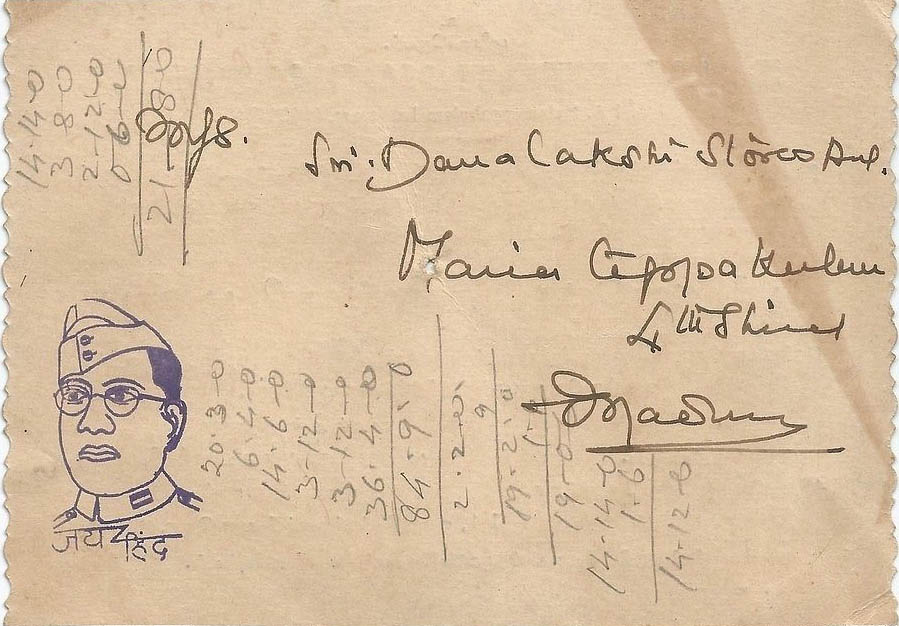 14-14-0
3-8-0
2-12-0
0-6-0
21-8-0
Sri. Dana Lakshi Stores And.
Maria Teppa Kulam
4th Street
जय हिंद
20-3-0
6-4-0
14-6-0
3-12-0
3-12-0
36-4-0
84-9-0
2-2-0
9
19-2-0
19-0
14-14-0
1-6
14-12-0